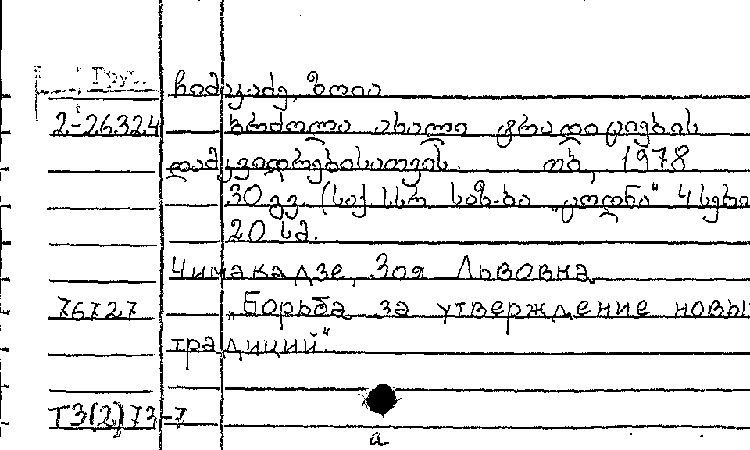 Груз.
ჩიმაკაძე, ზოია
2-26324 ბრძოლა ახალი ტრადიციების
დამკვიდრებისათვის. თბ., 1978
30 გვ. (საქ. სსრ საზ-ბა „ცოდნა"
20 სმ.
Чимакадзе, Зоя Львовна
76727 „Борьба за утверждение новы
традиций"
Т3(2)73-7
а